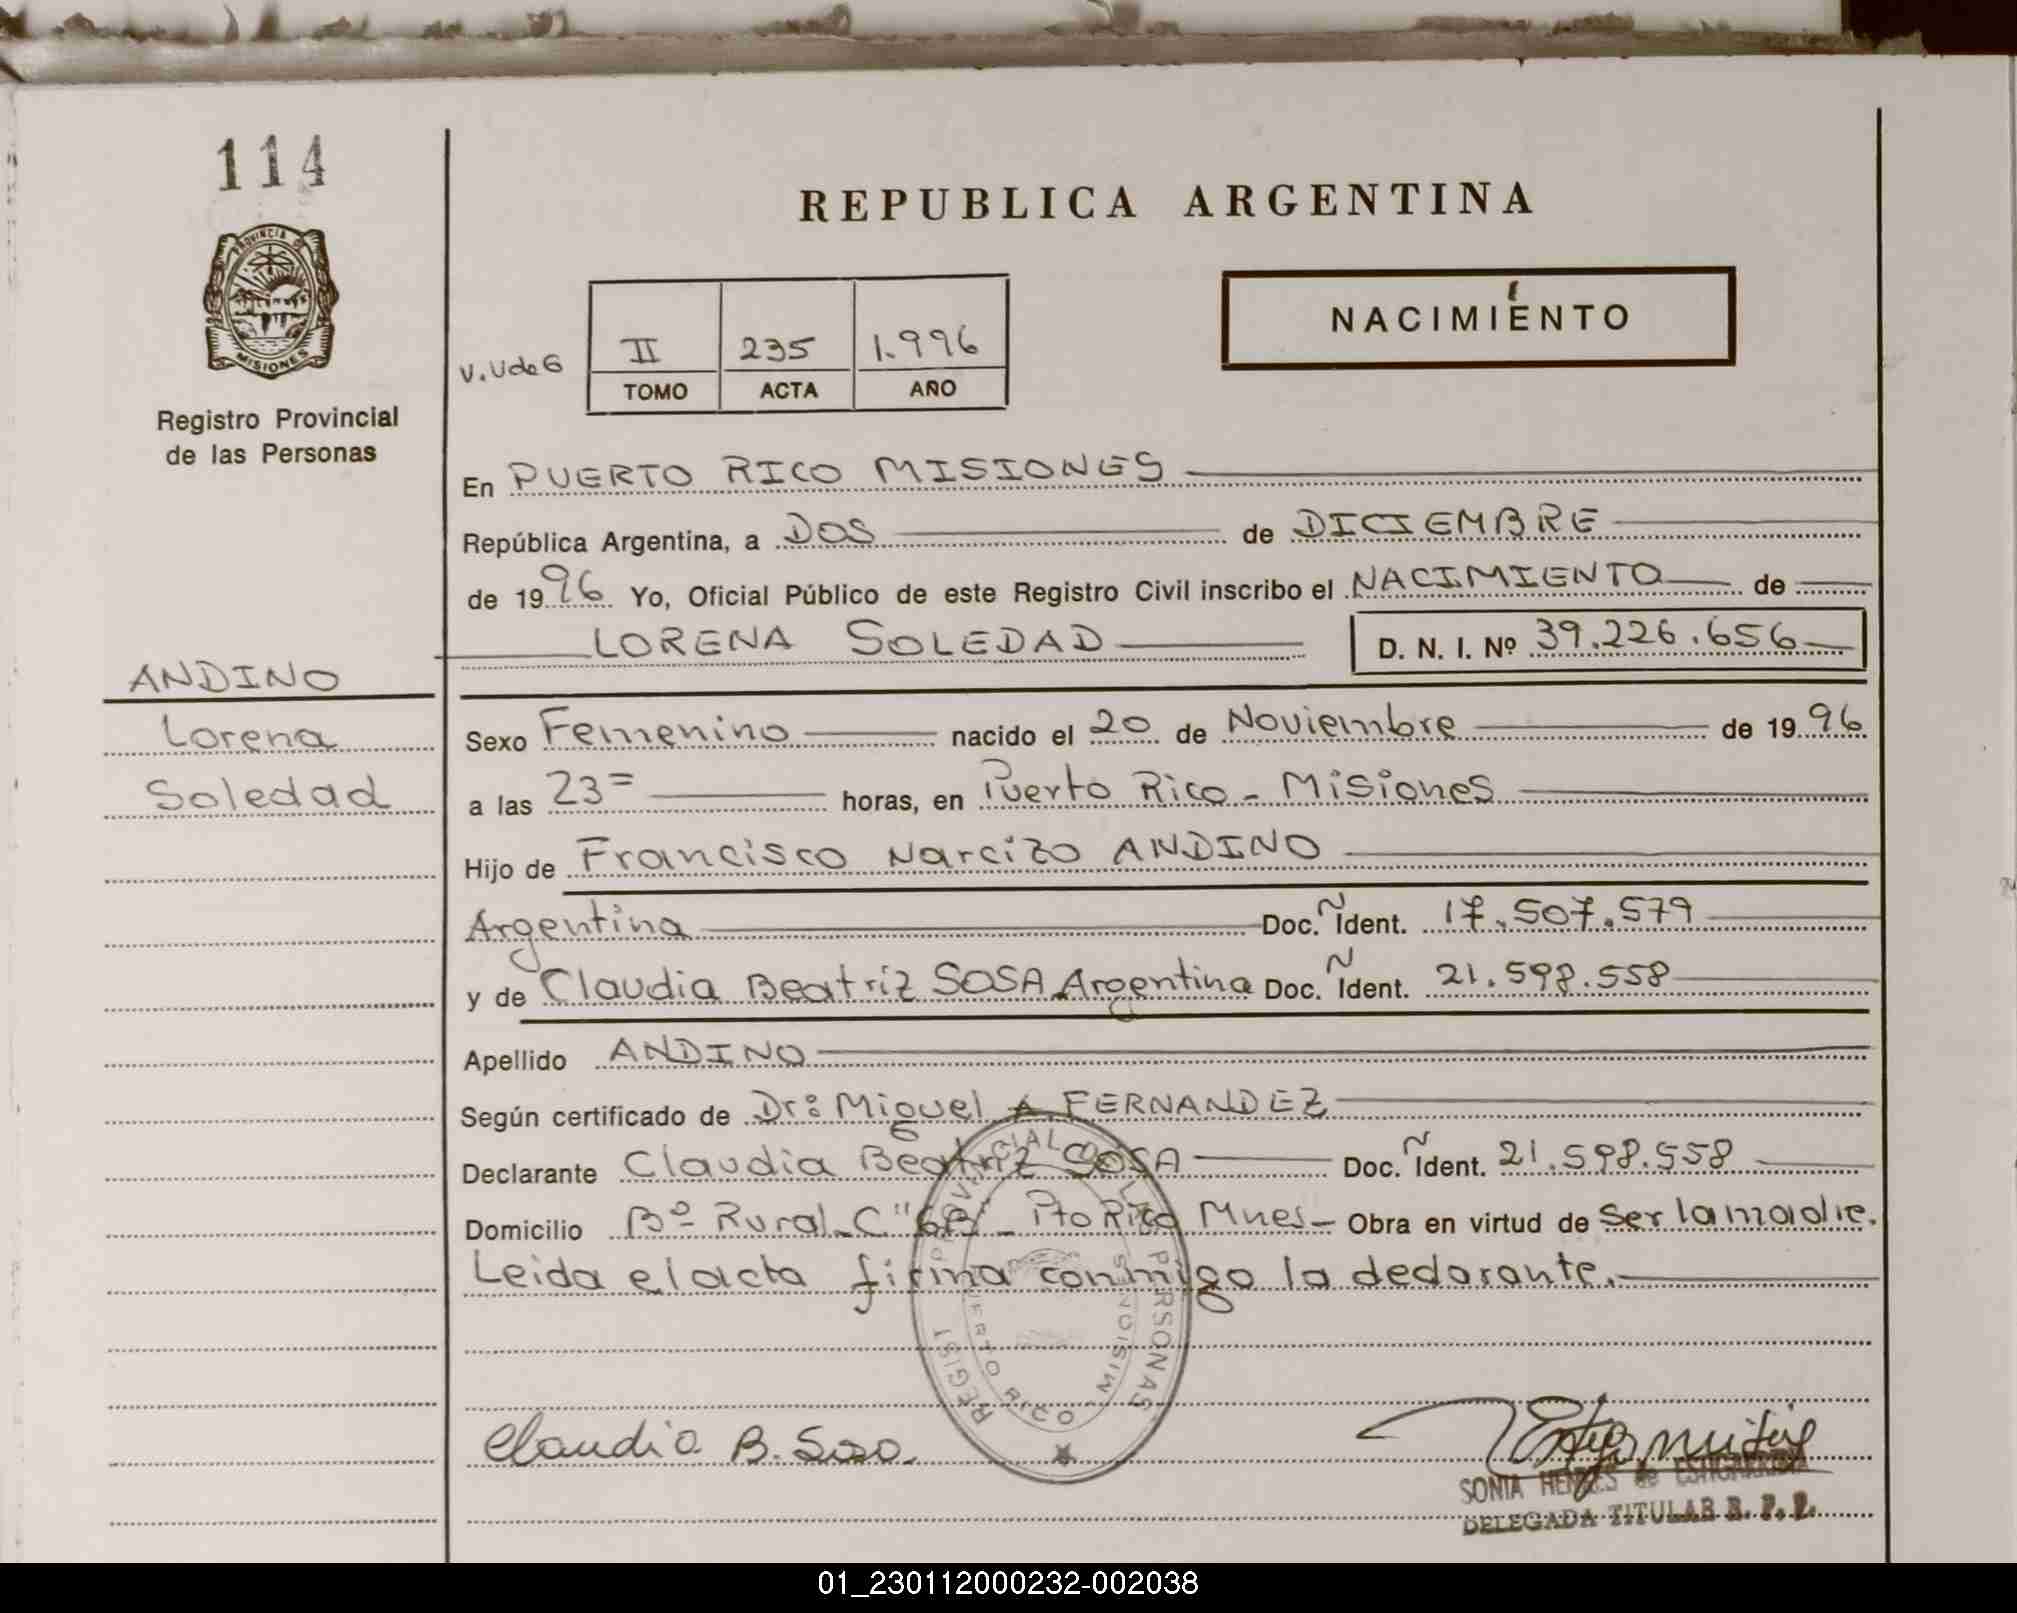 114
REPUBLICA ARGENTINA
PROVINCIA DE
MISIONES
NACIMIENTO
V.Ude6
II 235 1.996
TOMO ACTA AÑO
Registro Provincial
de las Personas
En PUERTO RICO MISIONES
República Argentina, a DOS de DICIEMBRE
de 1996 Yo, Oficial Público de este Registro Civil inscribo el NACIMIENTO de
LORENA SOLEDAD D. N. I. Nº 39.226.656
ANDINO
Lorena
Soledad
Sexo Femenino nacido el 20 de Noviembre de 1996
a las 23= horas, en Puerto Rico - Misiones
Hijo de Francisco Narcizo ANDINO
Argentina Doc. Ident. 17.507.579
y de Claudia Beatriz SOSA Argentina Doc. Ident. 21.598.558
Apellido ANDINO
Según certificado de Dr: Miguel A. FERNANDEZ
Declarante Claudia Beatriz SOSA Doc. Ident. 21.598.558
Domicilio Bº Rural C "6B" - Pto Rico Mnes - Obra en virtud de Ser la madre.
Leida el acta firma conmigo la declarante.
REGISTRO PROVINCIAL DE LAS PERSONAS
PUERTO RICO MISIONES
Claudia B. Sosa.
SONIA HENDES de
DELEGADA TITULAR R. P. P.
01_230112000232-002038